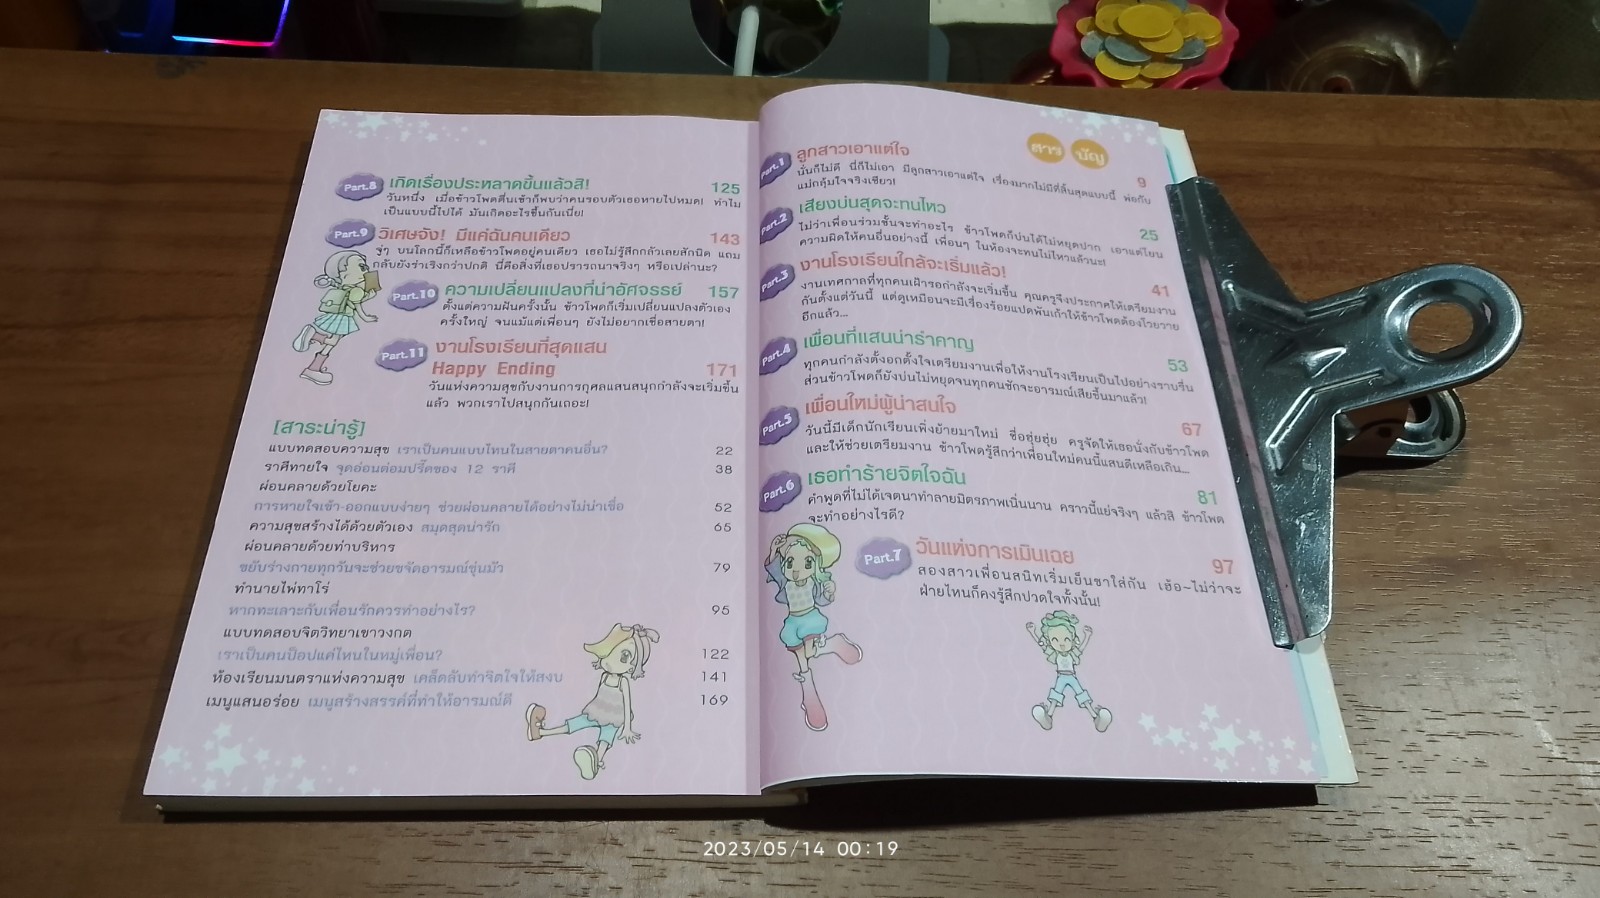 Part.8 เกิดเรื่องประหลาดขึ้นแล้วสิ! 125
วันหนึ่ง เมื่อข้าวโพดตื่นเช้าก็พบว่าคนรอบตัวเธอหายไปหมด! ทำไม
เป็นแบบนี้ไปได้ มันเกิดอะไรขึ้นกันเนี่ย!
Part.9 วิเศษจัง! มีแค่ฉันคนเดียว 143
จู่ๆ บนโลกนี้ก็เหลือข้าวโพดอยู่คนเดียว เธอไม่รู้สึกกลัวเลยสักนิด แถม
กลับยังร่าเริงกว่าปกติ นี่คือสิ่งที่เธอปรารถนาจริงๆ หรือเปล่านะ?
Part.10 ความเปลี่ยนแปลงที่น่าอัศจรรย์ 157
ตั้งแต่ความฝันครั้งนั้น ข้าวโพดก็เริ่มเปลี่ยนแปลงตัวเอง
ครั้งใหญ่ จนแม้แต่เพื่อนๆ ยังไม่อยากเชื่อสายตา!
Part.11 งานโรงเรียนที่สุดแสน
Happy Ending 171
วันแห่งความสุขกับงานการกุศลแสนสนุกกำลังจะเริ่มขึ้น
แล้ว พวกเราไปสนุกกันเถอะ!
[สาระน่ารู้]
แบบทดสอบความสุข เราเป็นคนแบบไหนในสายตาคนอื่น? 22
ราศีทายใจ จุดอ่อนต่อมปรี๊ดของ 12 ราศี 38
ผ่อนคลายด้วยโยคะ
การหายใจเข้า-ออกแบบง่ายๆ ช่วยผ่อนคลายได้อย่างไม่น่าเชื่อ 52
ความสุขสร้างได้ด้วยตัวเอง สมุดสุดน่ารัก 65
ผ่อนคลายด้วยท่าบริหาร
ขยับร่างกายทุกวันจะช่วยขจัดอารมณ์ขุ่นมัว 79
ทำนายไพ่ทาโร่
หากทะเลาะกับเพื่อนรักควรทำอย่างไร? 95
แบบทดสอบจิตวิทยาเขาวงกต
เราเป็นคนป็อปแค่ไหนในหมู่เพื่อน? 122
ห้องเรียนมนตราแห่งความสุข เคล็ดลับทำจิตใจให้สงบ 141
เมนูแสนอร่อย เมนูสร้างสรรค์ที่ทำให้อารมณ์ดี 169
สารบัญ
Part.1 ลูกสาวเอาแต่ใจ 9
นั่นก็ไม่ดี นี่ก็ไม่เอา มีลูกสาวเอาแต่ใจ เรื่องมากไม่มีที่สิ้นสุดแบบนี้ พ่อกับ
แม่กลุ้มใจจริงเชียว!
Part.2 เสียงบ่นสุดจะทนไหว 25
ไม่ว่าเพื่อนร่วมชั้นจะทำอะไร ข้าวโพดก็บ่นได้ไม่หยุดปาก เอาแต่โยน
ความผิดให้คนอื่นอย่างนี้ เพื่อนๆ ในห้องจะทนไม่ไหวแล้วนะ!
Part.3 งานโรงเรียนใกล้จะเริ่มแล้ว! 41
งานเทศกาลที่ทุกคนเฝ้ารอกำลังจะเริ่มขึ้น คุณครูจึงประกาศให้เตรียมงาน
กันตั้งแต่วันนี้ แต่ดูเหมือนจะมีเรื่องร้อยแปดพันเก้าให้ข้าวโพดต้องโวยวาย
อีกแล้ว...
Part.4 เพื่อนที่แสนน่ารำคาญ 53
ทุกคนกำลังตั้งอกตั้งใจเตรียมงานเพื่อให้งานโรงเรียนเป็นไปอย่างราบรื่น
ส่วนข้าวโพดก็ยังบ่นไม่หยุดจนทุกคนชักจะอารมณ์เสียขึ้นมาแล้ว!
Part.5 เพื่อนใหม่ผู้น่าสนใจ 67
วันนี้มีเด็กนักเรียนเพิ่งย้ายมาใหม่ ชื่อฮุ่ยฮุ่ย ครูจัดให้เธอนั่งกับข้าวโพด
และให้ช่วยเตรียมงาน ข้าวโพดรู้สึกว่าเพื่อนใหม่คนนี้แสนดีเหลือเกิน...
Part.6 เธอทำร้ายจิตใจฉัน 81
คำพูดที่ไม่ได้เจตนาทำลายมิตรภาพเนิ่นนาน คราวนี้แย่จริงๆ แล้วสิ ข้าวโพด
จะทำอย่างไรดี?
Part.7 วันแห่งการเมินเฉย 97
สองสาวเพื่อนสนิทเริ่มเย็นชาใส่กัน เฮ้อ~ไม่ว่าจะ
ฝ่ายไหนก็คงรู้สึกปวดใจทั้งนั้น!
2023/05/14 00:19